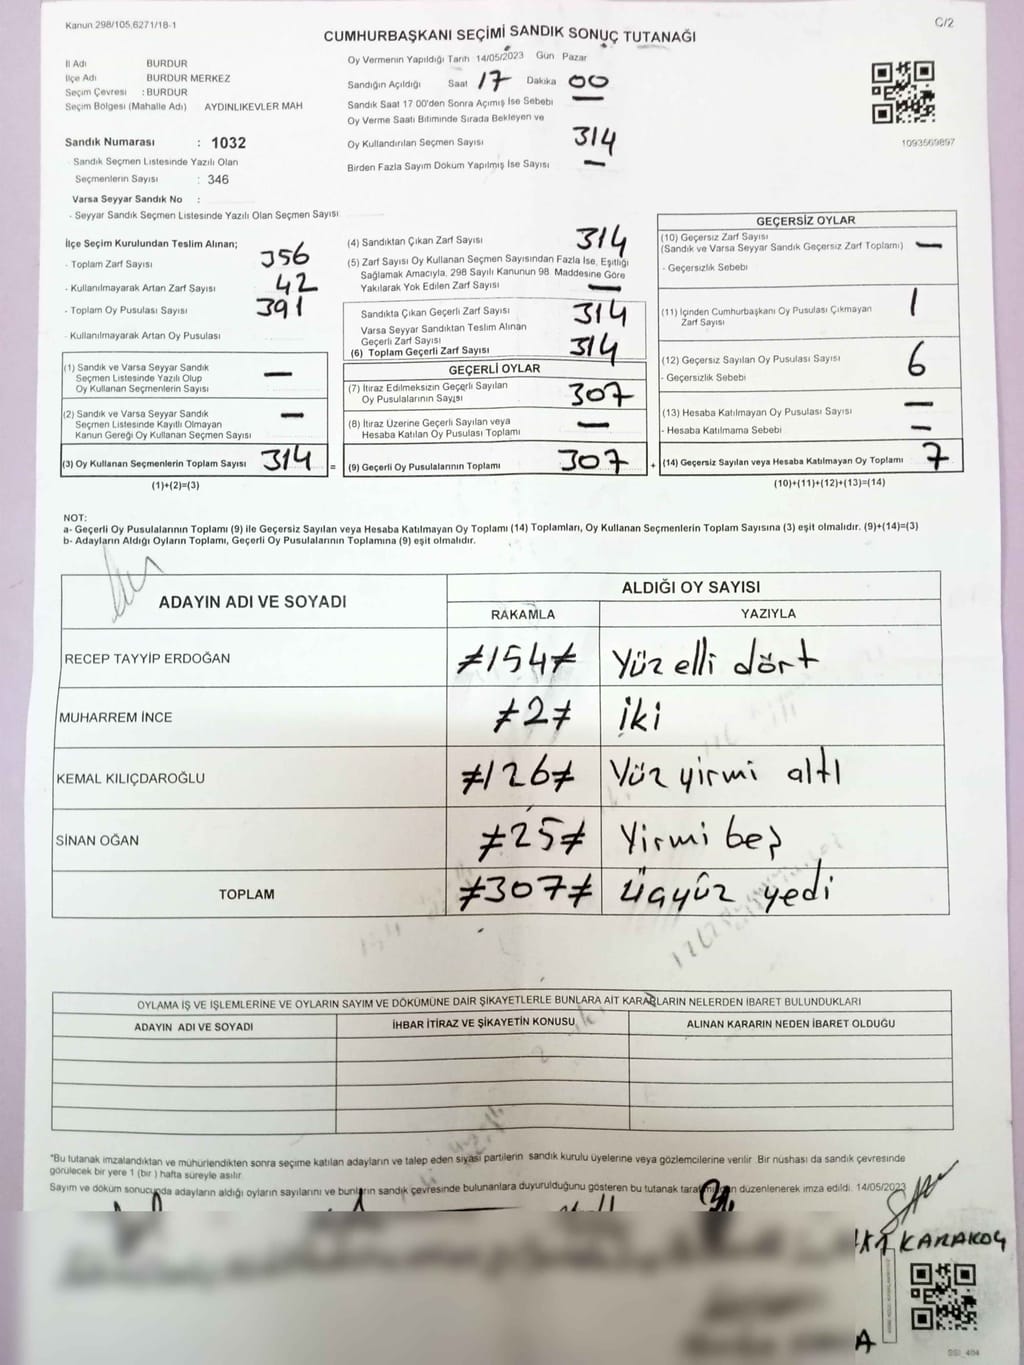 Kanun 298/105,6271/18-1
C/2
CUMHURBAŞKANI SEÇİMİ SANDIK SONUÇ TUTANAĞI
İl Adı BURDUR
İlçe Adı BURDUR MERKEZ
Seçim Çevresi : BURDUR
Seçim Bölgesi (Mahalle Adı) AYDINLIKEVLER MAH
Sandık Numarası : 1032
- Sandık Seçmen Listesinde Yazılı Olan
Seçmenlerin Sayısı : 346
Varsa Seyyar Sandık No :
- Seyyar Sandık Seçmen Listesinde Yazılı Olan Seçmen Sayısı
Oy Vermenin Yapıldığı Tarih 14/05/2023 Gün Pazar
Sandığın Açıldığı Saat 17 Dakika 00
Sandık Saat 17 00'den Sonra Açımış İse Sebebi —
Oy Verme Saati Bitiminde Sırada Bekleyen ve
Oy Kullandırılan Seçmen Sayısı 314
Birden Fazla Sayım Döküm Yapılmış İse Sayısı —
1093569897
İlçe Seçim Kurulundan Teslim Alınan;
- Toplam Zarf Sayısı 356
- Kullanılmayarak Artan Zarf Sayısı 42
- Toplam Oy Pusulası Sayısı 391
- Kullanılmayarak Artan Oy Pusulası
(1) Sandık ve Varsa Seyyar Sandık
Seçmen Listesinde Yazılı Olup
Oy Kullanan Seçmenlerin Sayısı —
(2) Sandık ve Varsa Seyyar Sandık
Seçmen Listesinde Kayıtlı Olmayan
Kanun Gereği Oy Kullanan Seçmen Sayısı —
(3) Oy Kullanan Seçmenlerin Toplam Sayısı 314 =
(1)+(2)=(3)
(4) Sandıktan Çıkan Zarf Sayısı 314
(5) Zarf Sayısı Oy Kullanan Seçmen Sayısından Fazla İse, Eşitliği
Sağlamak Amacıyla, 298 Sayılı Kanunun 98. Maddesine Göre
Yakılarak Yok Edilen Zarf Sayısı —
Sandıkta Çıkan Geçerli Zarf Sayısı 314
Varsa Seyyar Sandıktan Teslim Alınan
Geçerli Zarf Sayısı
(6) Toplam Geçerli Zarf Sayısı 314
GEÇERLİ OYLAR
(7) İtiraz Edilmeksizin Geçerli Sayılan
Oy Pusulalarının Sayısı 307
(8) İtiraz Üzerine Geçerli Sayılan veya
Hesaba Katılan Oy Pusulası Toplamı —
(9) Geçerli Oy Pusulalarının Toplamı 307 +
GEÇERSİZ OYLAR
(10) Geçersiz Zarf Sayısı
(Sandık ve Varsa Seyyar Sandık Geçersiz Zarf Toplamı) —
- Geçersizlik Sebebi
(11) İçinden Cumhurbaşkanı Oy Pusulası Çıkmayan
Zarf Sayısı 1
(12) Geçersiz Sayılan Oy Pusulası Sayısı 6
- Geçersizlik Sebebi
(13) Hesaba Katılmayan Oy Pusulası Sayısı —
- Hesaba Katılmama Sebebi —
(14) Geçersiz Sayılan veya Hesaba Katılmayan Oy Toplamı 7
(10)+(11)+(12)+(13)=(14)
NOT:
a- Geçerli Oy Pusulalarının Toplamı (9) ile Geçersiz Sayılan veya Hesaba Katılmayan Oy Toplamı (14) Toplamları, Oy Kullanan Seçmenlerin Toplam Sayısına (3) eşit olmalıdır. (9)+(14)=(3)
b- Adayların Aldığı Oyların Toplamı, Geçerli Oy Pusulalarının Toplamına (9) eşit olmalıdır.
ADAYIN ADI VE SOYADI ALDIĞI OY SAYISI
RAKAMLA YAZIYLA
RECEP TAYYİP ERDOĞAN ≠154≠ Yüz elli dört
MUHARREM İNCE ≠2≠ İki
KEMAL KILIÇDAROĞLU ≠126≠ Yüz yirmi altı
SİNAN OĞAN ≠25≠ Yirmi beş
TOPLAM ≠307≠ Üçyüz yedi
OYLAMA İŞ VE İŞLEMLERİNE VE OYLARIN SAYIM VE DÖKÜMÜNE DAİR ŞİKAYETLERLE BUNLARA AİT KARARLARIN NELERDEN İBARET BULUNDUKLARI
ADAYIN ADI VE SOYADI İHBAR İTİRAZ VE ŞİKAYETİN KONUSU ALINAN KARARIN NEDEN İBARET OLDUĞU
*Bu tutanak imzalandıktan ve mühürlendikten sonra seçime katılan adayların ve talep eden siyasi partilerin sandık kurulu üyelerine veya gözlemcilerine verilir. Bir nüshası da sandık çevresinde
görülecek bir yere 1 (bir ) hafta süreyle asılır.
Sayım ve döküm sonucunda adayların aldığı oyların sayılarını ve bunların sandık çevresinde bulunanlara duyurulduğunu gösteren bu tutanak tarafımızdan düzenlenerek imza edildi. 14/05/2023
KARAKOÇ
A
SSI_404